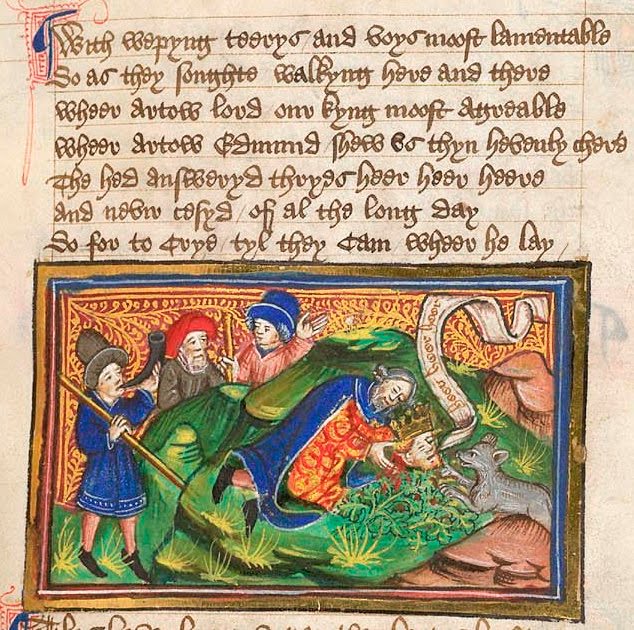 With wepyng teerys / and voys moost lamentable
So as they soughte walkyng here and there
Wheer artow lord our kyng moost agreable
Wheer artow Edmund / shew us thyn hevenly chere
The hed answeryd thryes heer heer heere
And nevir cesyd / of al the long day
So for to crye / tyl they cam / wheer he lay /
heer heer heer